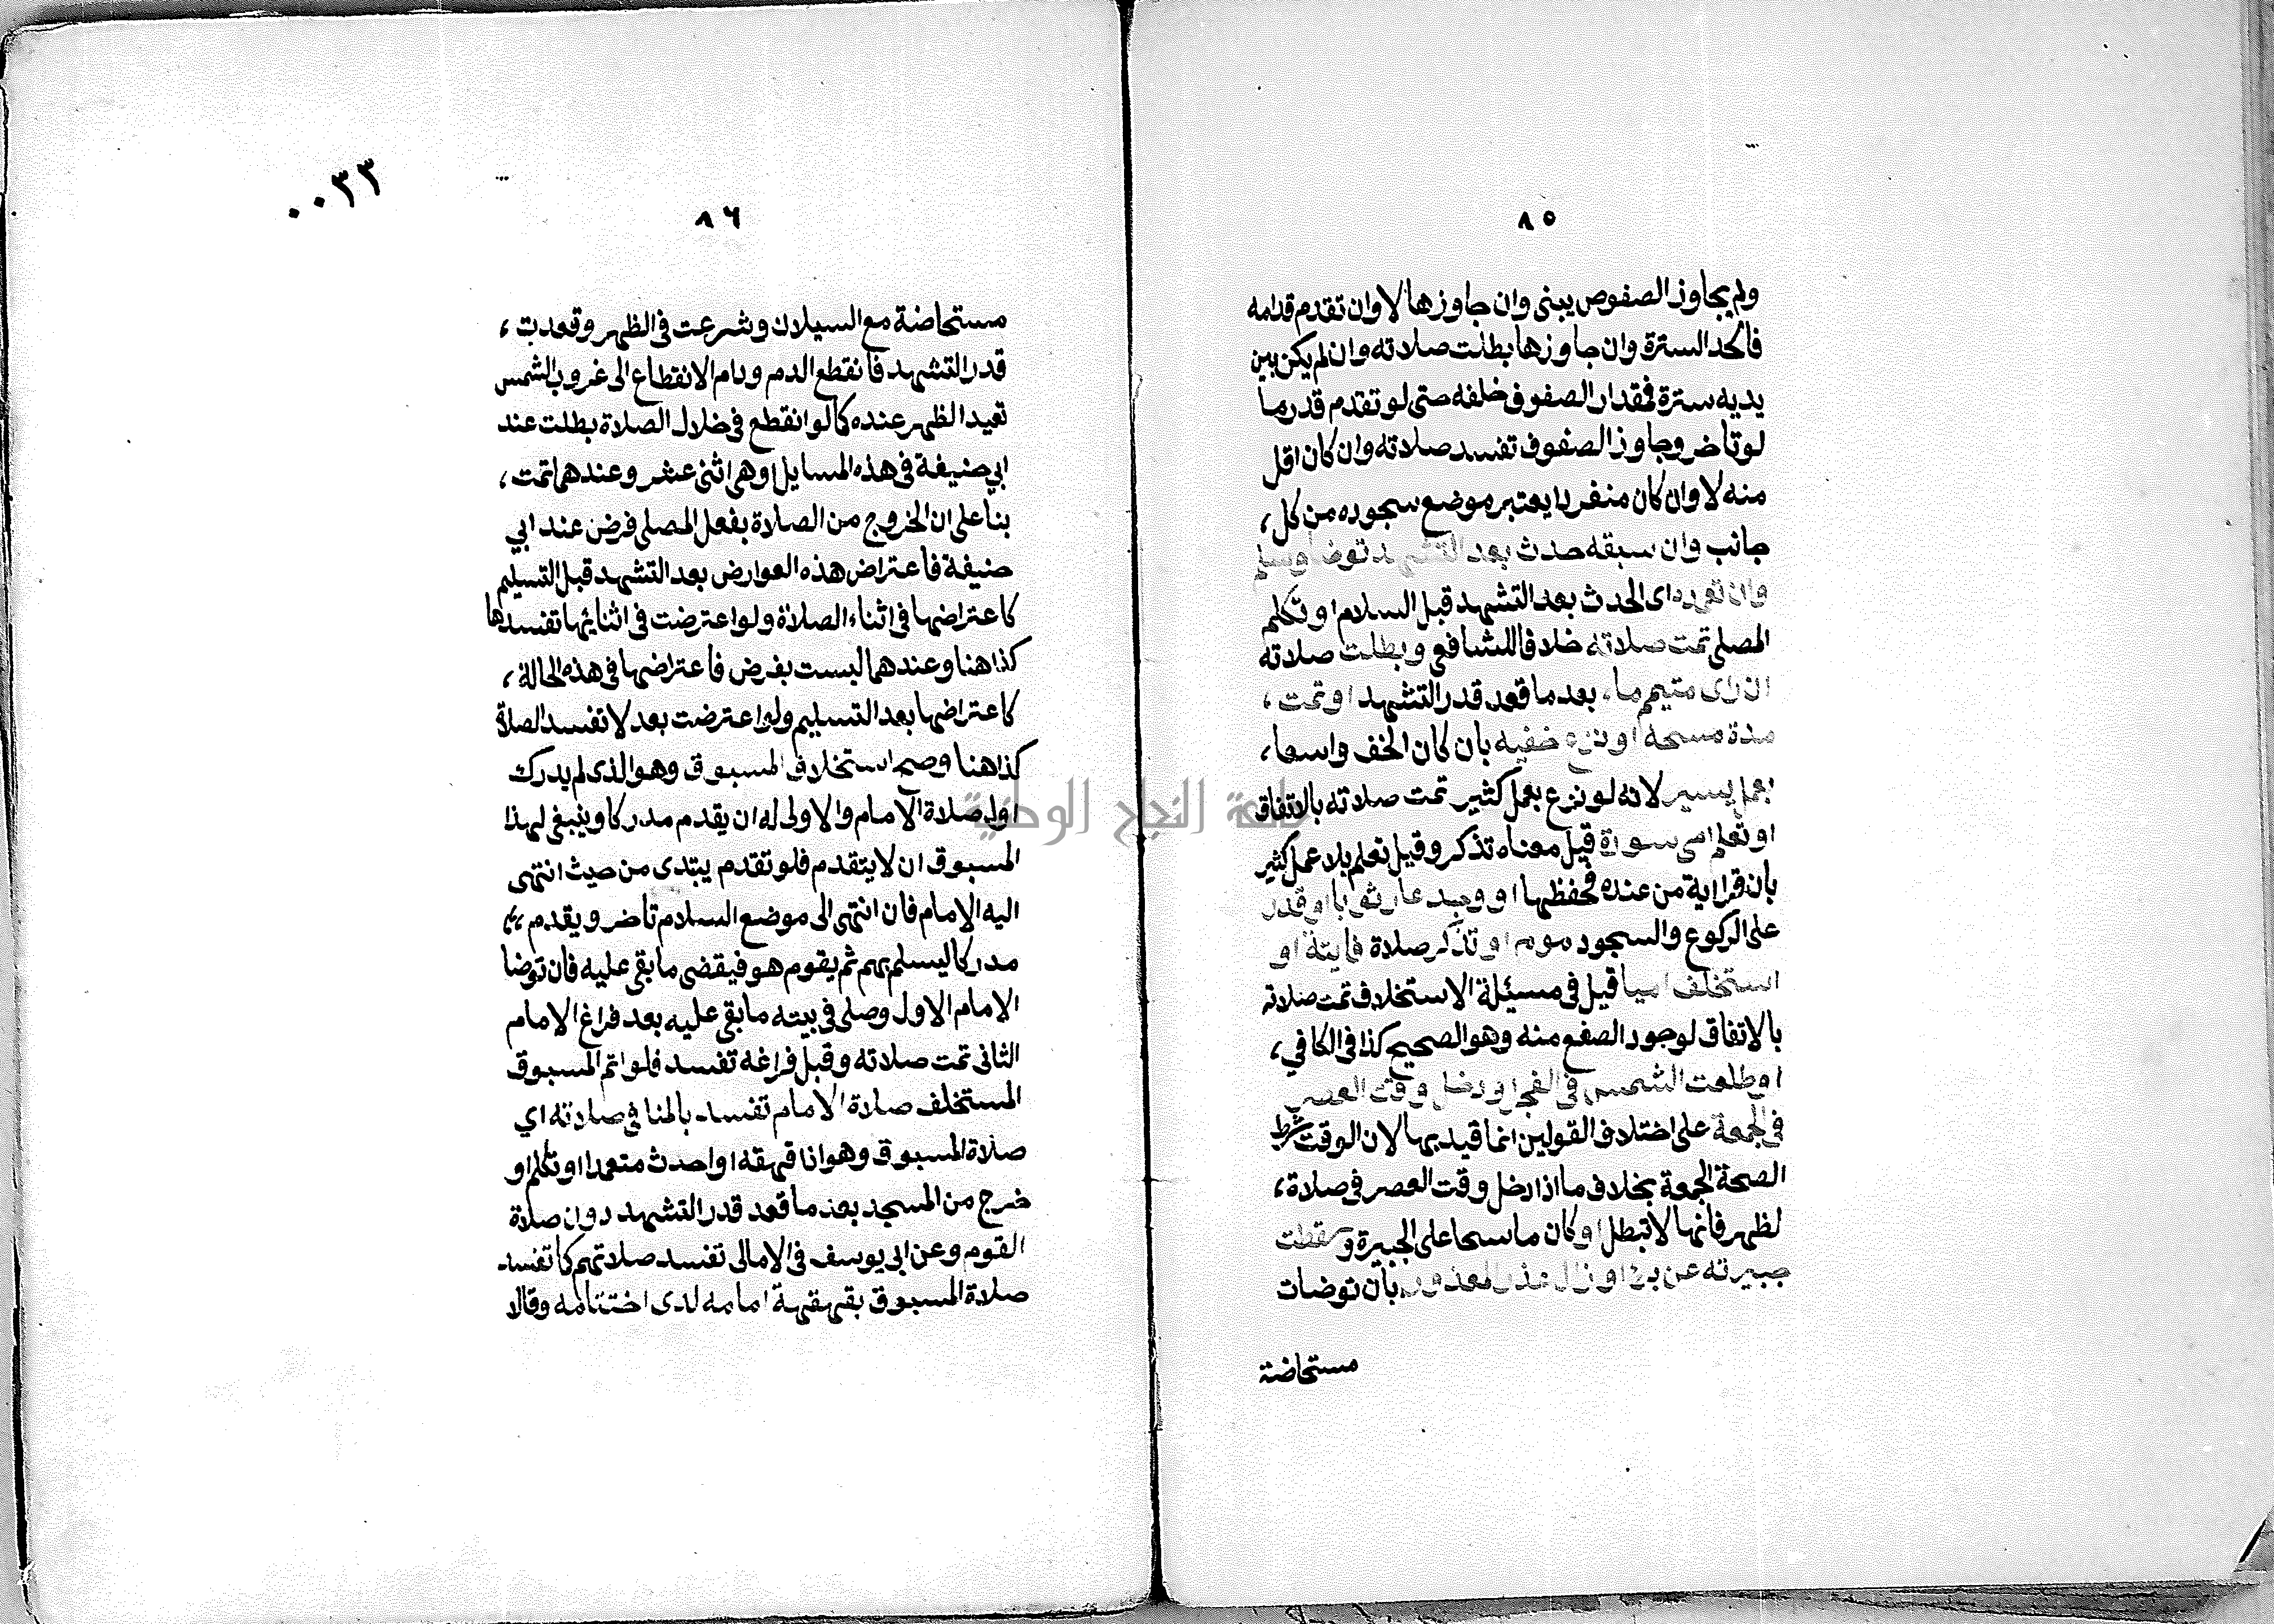 ٨٥
ولم يجاوز الصفوص يبنى وان جاوزها لا وان تقدم قدامه
فالحد السترة وان جاوزها بطلت صلاته وان لم يكن بين
يديه سترة فمقدار الصفوف خلفه حتى لو تقدم قدرما
لو تاخر وجاوز الصفوف تفسد صلاته وان كان اقل
منه لا وان كان منفردا يعتبر موضع سجوده من كل،
جانب وان سبقه حدث بعد التشهد توضا وسلم
وان تعمده اى الحدث بعد التشهد قبل السلام او تكلم
المصلى تمت صلاته خلافا للشافعى وبطلت صلاته
ان راى متيمم ماء بعد ما قعد قدر التشهد او تمت،
مدة مسحه او نزع خفيه بان كان الخف واسعا،
بعمل يسير لانه لو نزع بعمل كثير تمت صلاته بالاتفاق
او تعلم امى سورة قيل معناه تذكر وقيل تعلم بلا عمل كثير
بان قرا اية من عنده فحفظها او وجد عار ثوبا او قدر
على الركوع والسجود موم او تذكر صلاة فايتة او
استخلف اميا قيل فى مسئلة الاستخلاف تمت صلاته
بالاتفاق لوجود الصنع منه وهو الصحيح كذا فى الكافي،
او طلعت الشمس فى الفجر او دخل وقت العصر
فى الجمعة على اختلاف القولين انما قيد بها لان الوقت شرط
الصحة الجمعة بخلاف ما اذا دخل وقت العصر فى صلاة،
لظهر فانها لا تبطل او كان ماسحا على الجبيرة وسقطت
جبيرته عن برء او زال عذر المعذور بان توضات
مستحاضة
٠٠٣٣
٨٦
مستحاضة مع السيلان وشرعت فى الظهر وقعدت،
قدر التشهد فانقطع الدم ودام الانقطاع الى غروب الشمس
تعيد الظهر عنده كما لو انقطع فى خلال الصلاة بطلت عند
ابي حنيفة فى هذه المسايل وهى اثنى عشر وعندهما تمت،
بنا على ان الخروج من الصلاة بفعل المصلى فرض عند ابي
حنيفة فاعتراض هذه العوارض بعد التشهد قبل التسليم
كاعتراضها فى اثناء الصلاة ولو اعترضت فى اثنايها تفسدها
كذا هنا وعندهما ليست بفرض فاعتراضها فى هذه الحالة،
كاعتراضها بعد التسليم ولو اعترضت بعد لا تفسد الصلاة
كذا هنا وصح استخلاف المسبوق وهو الذى لم يدرك
اول صلاة الامام والاولى له ان يقدم مدركا وينبغى لهذا
المسبوق ان لا يتقدم فلو تقدم يبتدى من حيث انتهى
اليه الامام فان انتهى الى موضع السلام تاخر ويقدم،،
مدركا ليسلم بهم ثم يقوم هو فيقضى ما بقى عليه فان توضا
الامام الاول وصلى فى بيته ما بقى عليه بعد فراغ الامام
الثانى تمت صلاته وقبل فراغه تفسد فلو اتم المسبوق
المستخلف صلاة الامام تفسد بالمنافى صلاته اي
صلاة المسبوق وهو اذا قهقه او احدث متعمدا او تكلم او
خرج من المسجد بعد ما قعد قدر التشهد دون صلاة
القوم وعن ابى يوسف فى الامالى تفسد صلاتهم كما تفسد
صلاة المسبوق بقهقهة امامه لدى اختتامه وقالا